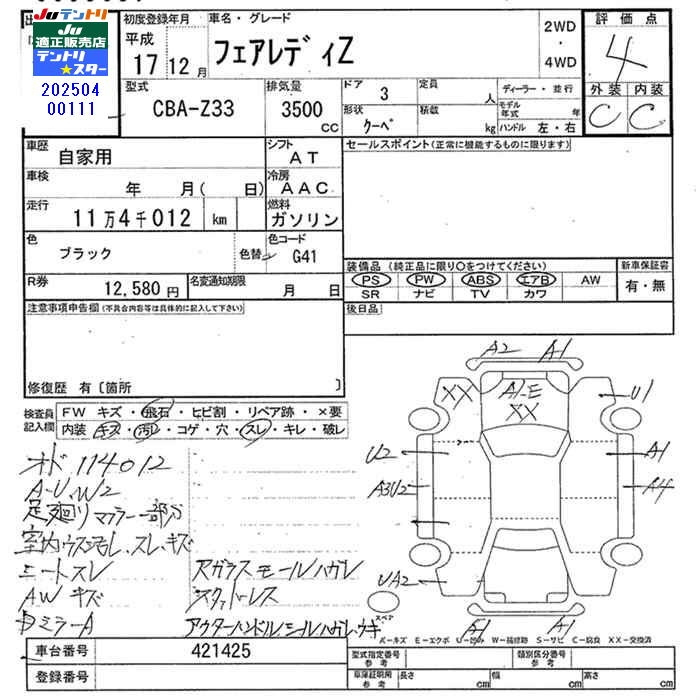 Juテントリ
Ju
適正販売店
テントリ
★スター
202504
00111
初度登録年月
平成
17 12 月
車名・グレード
フェアレディZ
2WD
・
4WD
評価点
4
外装 内装
C C
型式
CBA-Z33
排気量
3500
cc
ドア 3
定員 人
形状 クーペ
積載 kg
ディーラー・並行
モデル年式 年
ハンドル 左・右
車歴
自家用
シフト
AT
車検
年 月( 日)
冷房
AAC
走行
11万4千012 km
燃料
ガソリン
色
ブラック
色替
色コード
G41
R券
12,580 円
名変通知期限
月 日
セールスポイント(正常に機能するものに限ります)
装備品(純正品に限り○をつけてください)
PS PW ABS エアB AW
SR ナビ TV カワ
新車保証書
有・無
後日品
注意事項申告欄(不具合内容等は具体的に記入して下さい)
修復歴 有〔箇所 〕
検査員
記入欄
FW キズ・飛石・ヒビ割・リペア跡・×要
内装 キズ・汚レ・コゲ・穴・スレ・キレ・破レ
オド 114012
A・U、W2
足廻り マフラー一部分
シートスレ
AW キズ
Dミラー A
Rガラスモールハガレ
アウターハンドルシールハガレ・ウキ
A2 A1
XX
A1-E
XX
U1
U2
A1
A3U2
A4
UA2
A1 A1
スペア
A-キズ E-エクボ U-凹み W-補修跡 S-サビ C-腐食 XX-交換済
車台番号 421425
登録番号
型式指定番号
参考
類別区分番号
参考
車庫証明用
参考
長さ cm
幅 cm
高さ cm